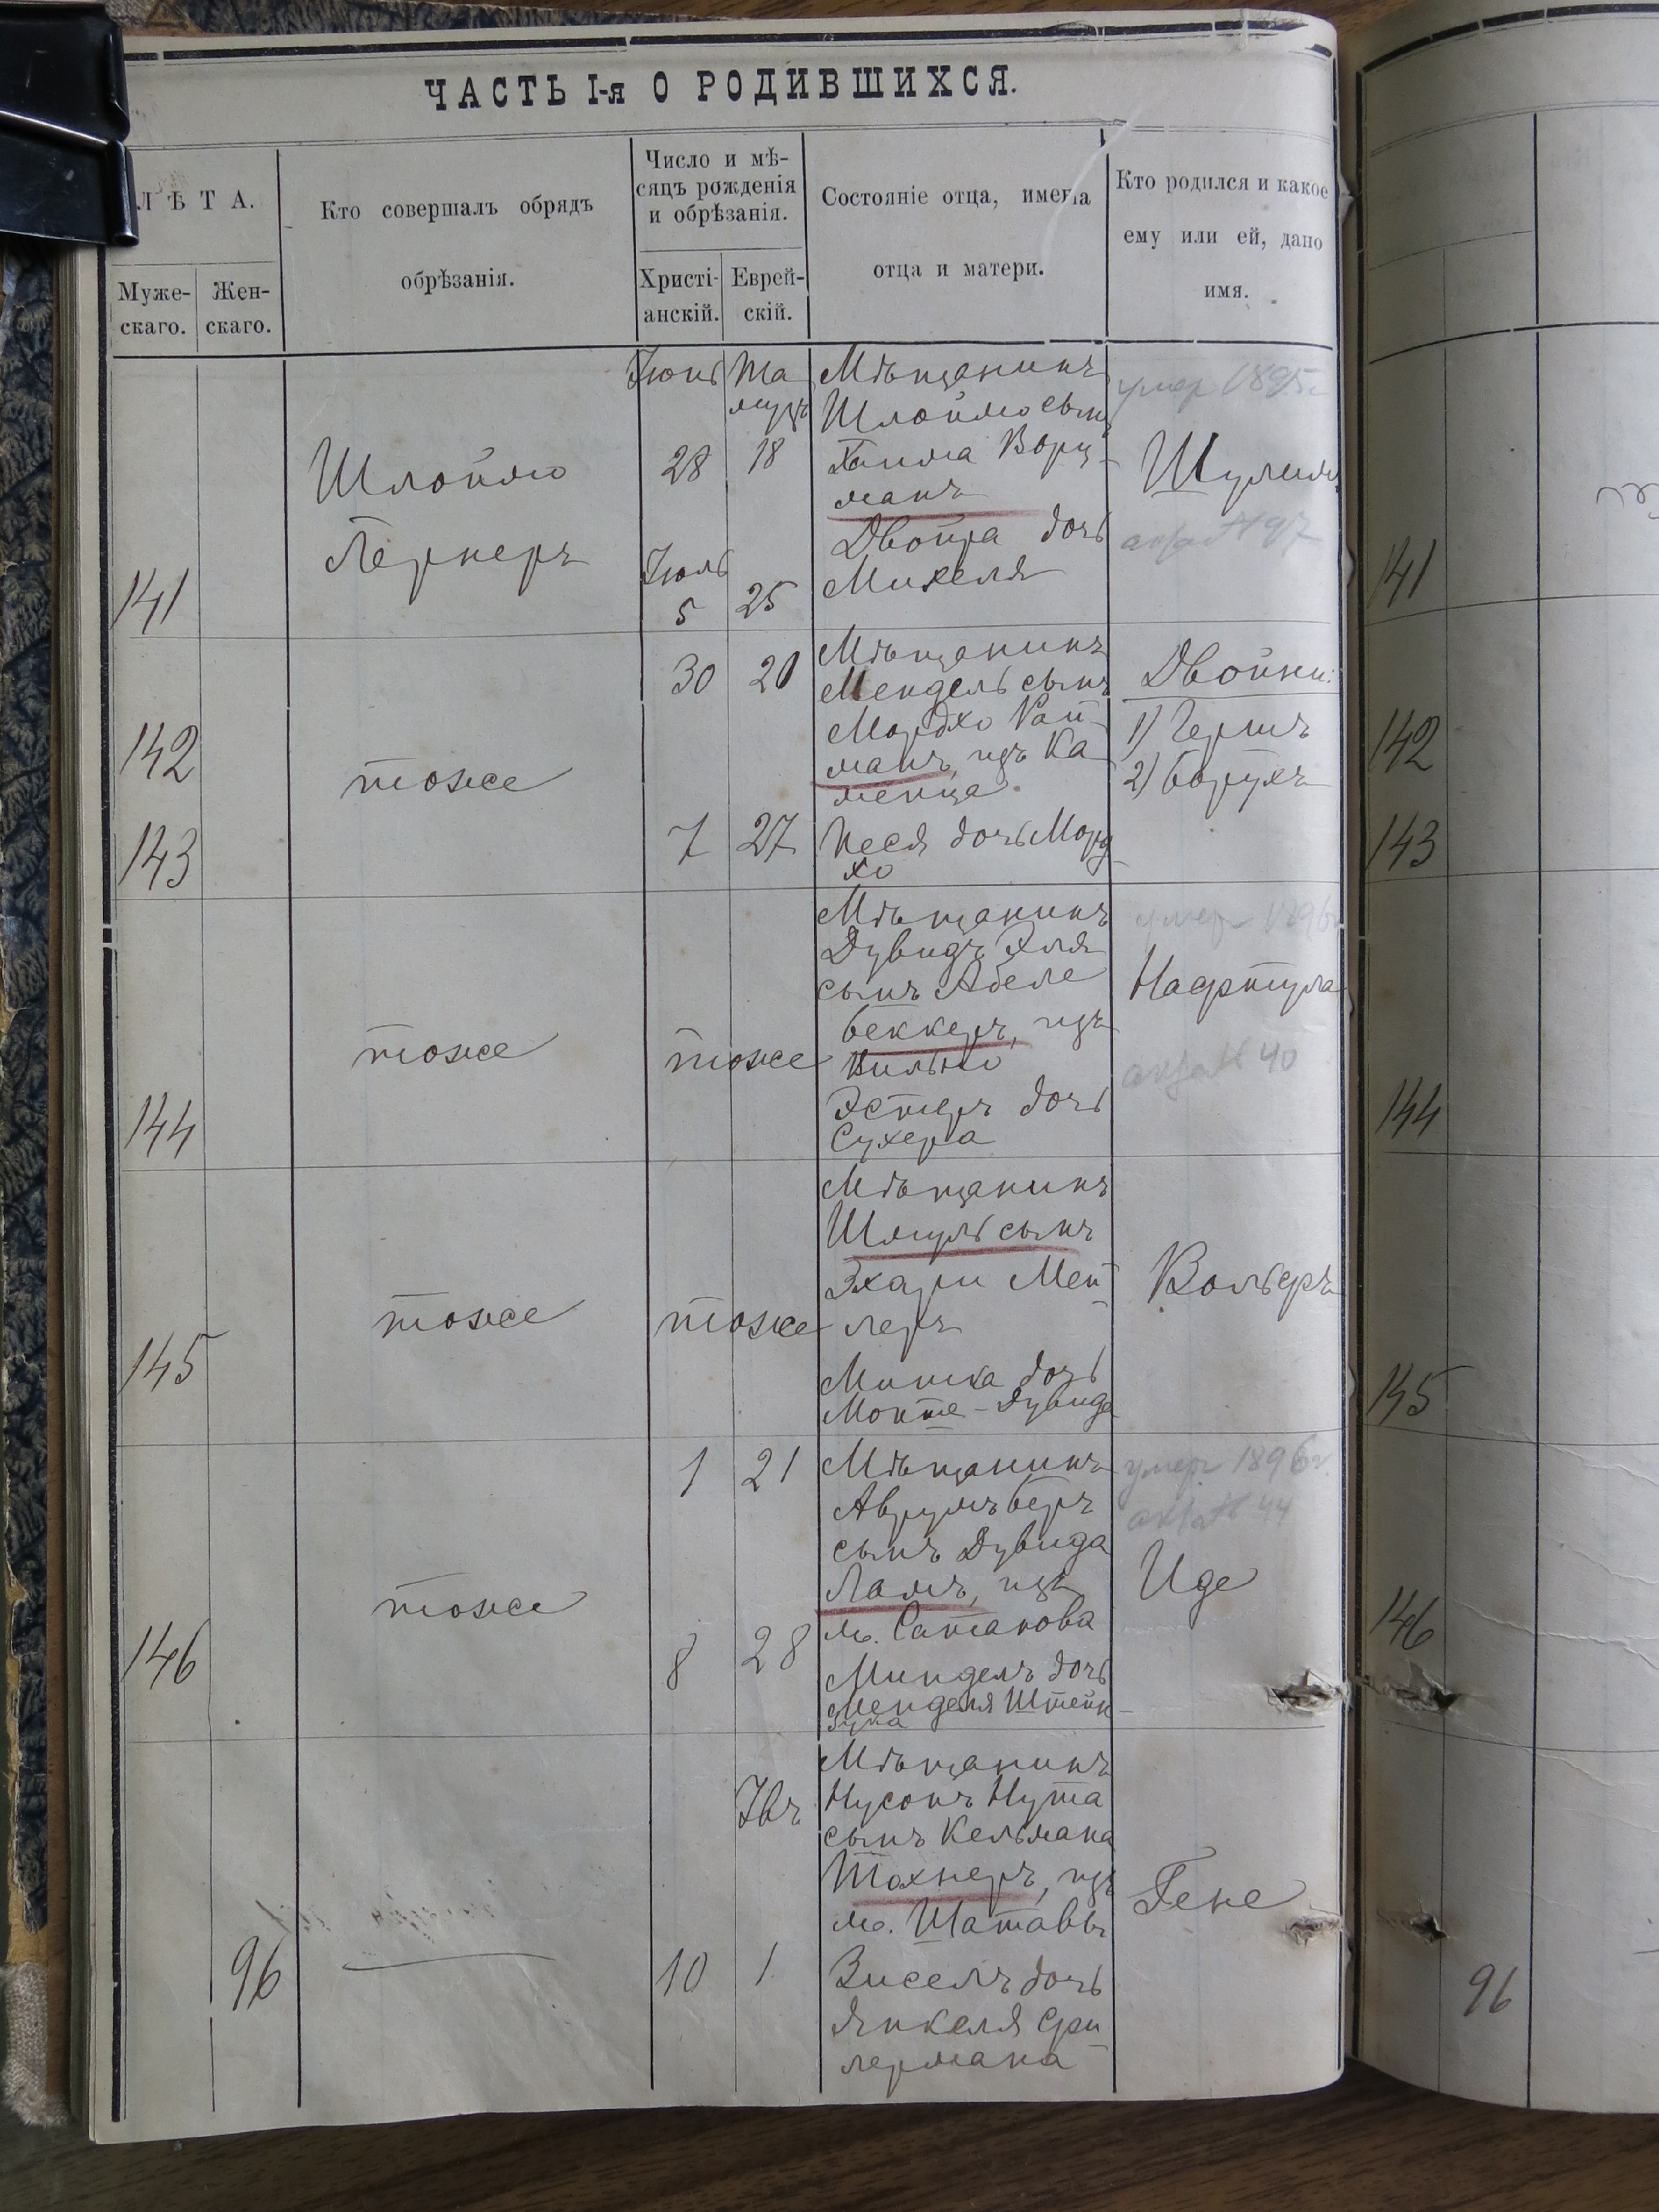 ЧАСТЬ I-я О РОДИВШИХСЯ.
ЛѢТА.
Муже-
скаго.
Жен-
скаго.
Кто совершалъ обрядъ
обрѣзанія.
Число и мѣ-
сяцъ рожденія
и обрѣзанія.
Христі-
анскій.
Еврей-
скій.
Состояніе отца, имена
отца и матери.
Кто родился и какое
ему или ей, дано
имя.
141
Шлоймо
Лернеръ
Іюнь
28
Іюль
5
Та
музъ
18
25
Мѣщанинъ
Шлоймо сынъ
Хаима Ворц-
манъ
Двойра дочь
Михеля
умер 1895 г
Шулимъ
акт № 97
141
142
143
тоже
30
20
7
27
Мѣщанинъ
Мендель сынъ
Мордхо Рай-
манъ, изъ Ка
менца
Песя дочь Морд-
хо
Двойни:
1) Гершъ
2) Борухъ
142
143
144
тоже
тоже
Мѣщанинъ
Дувидъ Эля
сынъ Абеле
Беккеръ, изъ
Вильно
Эстеръ дочь
Сухера
умер 1896
Нафтула
акт № 40
144
145
тоже
тоже
Мѣщанинъ
Шмуль сынъ
Мей-
леръ
дочь
Дувида
Вольфъ
145
146
тоже
1
21
8
28
Мѣщанинъ
Аврумъ Беръ
сынъ Дувида
Ламъ, изъ
м. Сатанова
Минделъ дочь
Менделя Штейн-
умер 1896 г.
акт № 44
Иде
146
96
10
Івъ
1
Мѣщанинъ
Нусонъ Нута
сынъ Кельмана
Тохнеръ, изъ
м. Шатавы
Зиселъ дочь
Янкеля Фри
лермана
Гене
96